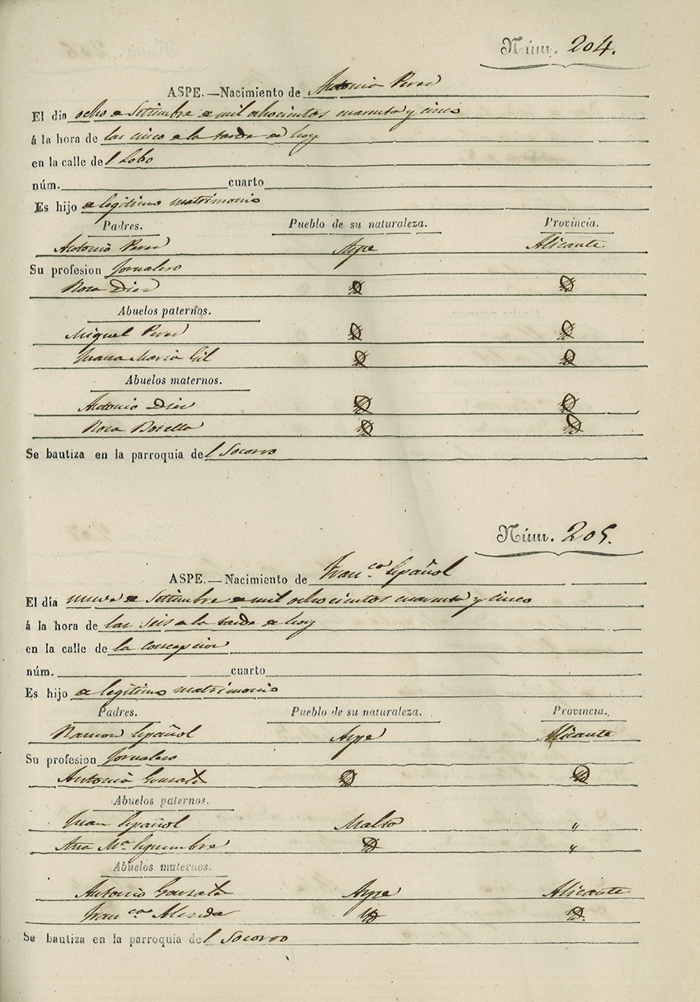 Núm. 204.
ASPE.—Nacimiento de Antonio Perez
El dia ocho de Setiembre de mil ochocientos cuarenta y cinco
á la hora de las cinco de la tarde de hoy
en la calle del Lobo
núm. cuarto
Es hijo de legítimo matrimonio
Padres. Pueblo de su naturaleza. Provincia.
Antonio Perez Aspe Alicante
Su profesion Jornalero
Rosa Diez
Abuelos paternos.
Miguel Perez
Juana Maria Gil
Abuelos maternos.
Antonio Diez
Rosa Botella
Se bautiza en la parroquia del Socorro
Núm. 205.
ASPE.—Nacimiento de Fran.co Español
El dia nueve de Setiembre de mil ochocientos cuarenta y cinco
á la hora de las seis de la tarde de hoy
en la calle de la concepcion
núm. cuarto
Es hijo de legítimo matrimonio
Padres. Pueblo de su naturaleza. Provincia.
Ramon Español Aspe Alicante
Su profesion Jornalero
Antonia Gonzalez
Abuelos paternos.
Juan Español "
Ana M.a "
Abuelos maternos.
Antonio Gonzalez Aspe Alicante
Fran.ca
Se bautiza en la parroquia del Socorro